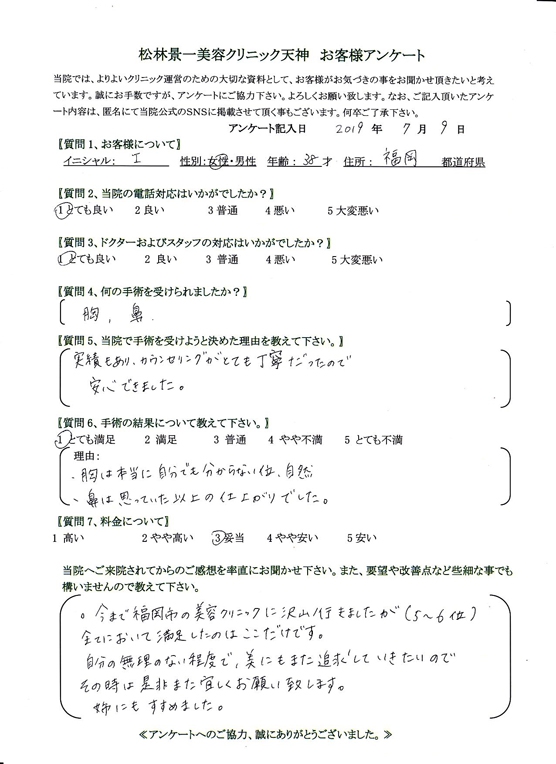 松林景一美容クリニック天神　お客様アンケート
当院では、よりよいクリニック運営のための大切な資料として、お客様がお気づきの事をお聞かせ頂きたいと考え
ています。誠にお手数ですが、アンケートにご協力下さい。よろしくお願い致します。なお、ご記入頂いたアンケ
ート内容は、匿名にて当院公式のSNSに掲載させて頂く事もございます。何卒ご了承下さい。
アンケート記入日　2019 年 7 月 9 日
【質問1、お客様について】
イニシャル： I　性別:女性・男性　年齢：38才　住所：福岡　都道府県
【質問2、当院の電話対応はいかがでしたか？】
1とても良い　2良い　3普通　4悪い　5大変悪い
【質問3、ドクターおよびスタッフの対応はいかがでしたか？】
1とても良い　2 良い　3 普通　4悪い　5大変悪い
【質問4、何の手術を受けられましたか？】
胸，鼻．
【質問5、当院で手術を受けようと決めた理由を教えて下さい。】
実績もあり、カウンセリングがとても丁寧だったので
安心できました。
【質問6、手術の結果について教えて下さい。】
1とても満足　2 満足　3 普通　4 やや不満　5 とても不満
理由：
・胸は本当に自分でも分からない位、自然
・鼻は思っていた以上の仕上がりでした。
【質問7、料金について】
1 高い　2やや高い　3妥当　4やや安い　5安い
当院へご来院されてからのご感想を率直にお聞かせ下さい。また、要望や改善点など些細な事でも
構いませんので教えて下さい。
○ 今まで福岡市の美容クリニックに沢山行きましたが（5〜6位）
全てにおいて満足したのはここだけです。
自分の無理のない程度で、美にもまた追求していきたいので
その時は是非また宜しくお願い致します。
姉にもすすめました。
≪アンケートへのご協力、誠にありがとうございました。≫